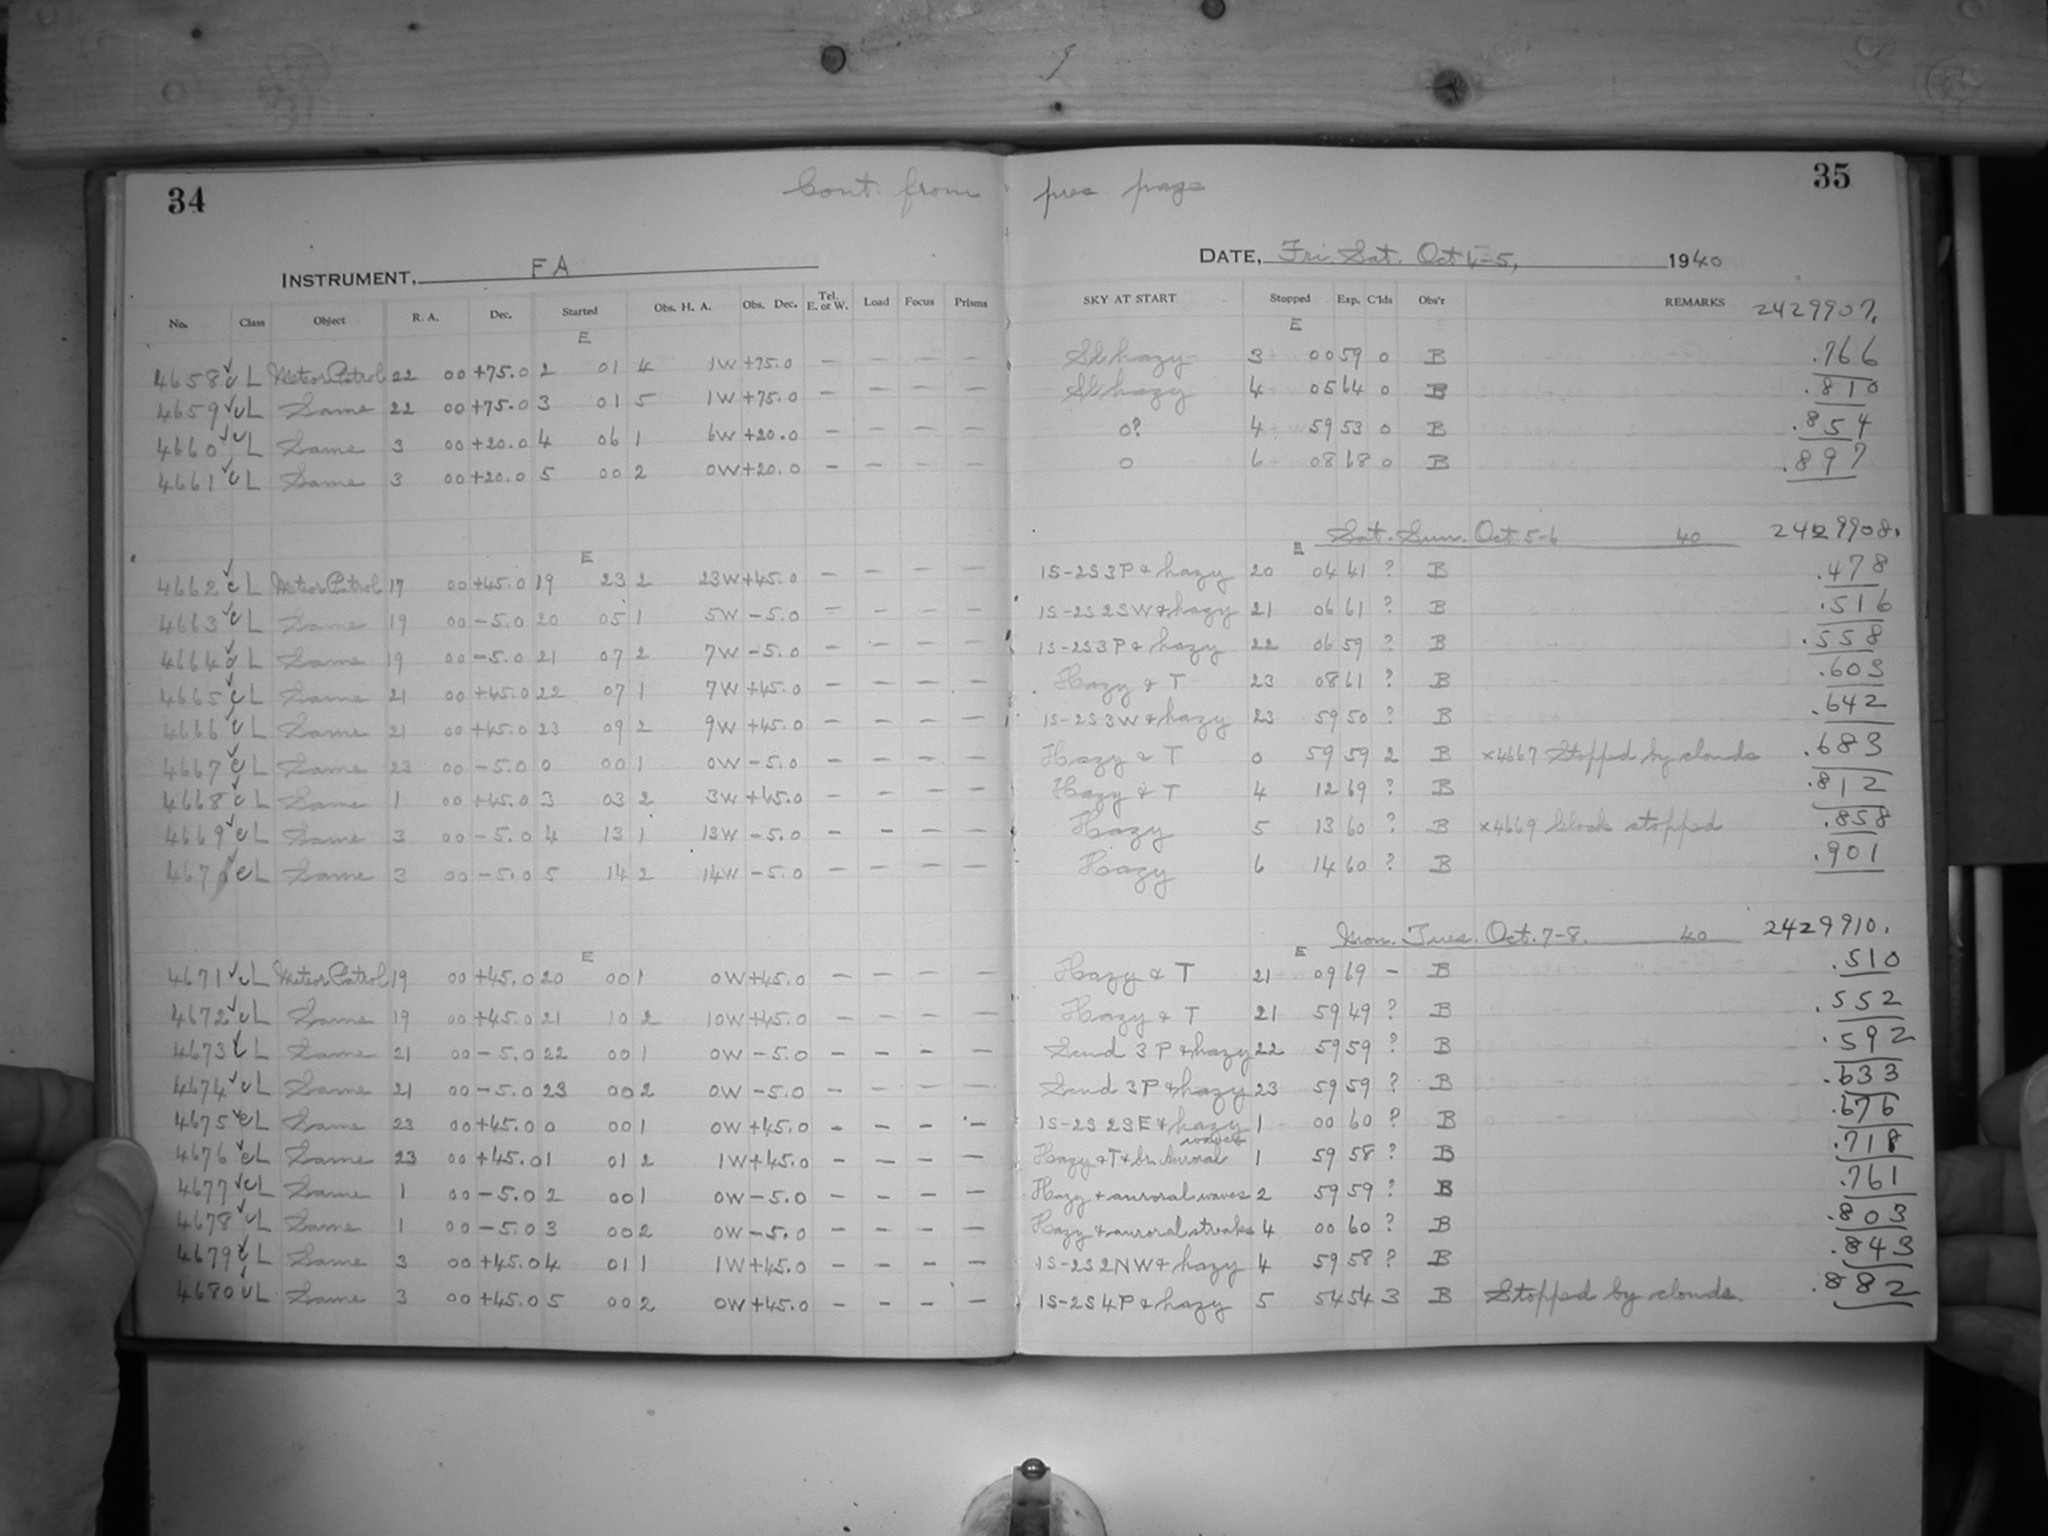 34 Cont. from prev page 35
INSTRUMENT, FA DATE, Fri. Sat. Oct 4-5, 1940
No. Class Object R. A. Dec. Started Obs. H. A. Obs. Dec. Tel. E. or W. Load Focus Prisms SKY AT START Stopped Exp. C'lds Obs'r REMARKS 2429907.
E E
4658 ✓ c L Meteor Patrol 22 00 +75.0 2 01 4 1W +75.0 — — — — Sl hazy 3 00 59 0 B .766
4659 ✓ c L Same 22 00 +75.0 3 01 5 1W +75.0 — — — — Sl hazy 4 05 64 0 B .810
4660 ✓ c L Same 3 00 +20.0 4 06 1 6W +20.0 — — — — 0? 4 59 53 0 B .854
4661 ✓ c L Same 3 00 +20.0 5 00 2 0W +20.0 — — — — 0 6 08 68 0 B .897
Sat. Sun. Oct. 5-6 40 2429908.
E E
4662 ✓ c L Meteor Patrol 17 00 +45.0 19 23 2 23W +45.0 — — — — 1S-2S 3P & hazy 20 04 41 ? B .478
4663 ✓ c L Same 19 00 -5.0 20 05 1 5W -5.0 — — — — 1S-2S 2SW & hazy 21 06 61 ? B .516
4664 ✓ c L Same 19 00 -5.0 21 07 2 7W -5.0 — — — — 1S-2S 3P & hazy 22 06 59 ? B .558
4665 ✓ c L Same 21 00 +45.0 22 07 1 7W +45.0 — — — — Hazy & T 23 08 61 ? B .603
4666 ✓ c L Same 21 00 +45.0 23 09 2 9W +45.0 — — — — 1S-2S 3W & hazy 23 59 50 ? B .642
4667 ✓ c L Same 23 00 -5.0 0 00 1 0W -5.0 — — — — Hazy & T 0 59 59 2 B ×4667 Stopped by clouds .683
4668 ✓ c L Same 1 00 +45.0 3 03 2 3W +45.0 — — — — Hazy & T 4 12 69 ? B .812
4669 ✓ c L Same 3 00 -5.0 4 13 1 13W -5.0 — — — — Hazy 5 13 60 ? B ×4669 Clock stopped .858
4670 ✓ c L Same 3 00 -5.0 5 14 2 14W -5.0 — — — — Hazy 6 14 60 ? B .901
Mon. Tues. Oct. 7-8. 40 2429910.
E E
4671 ✓ c L Meteor Patrol 19 00 +45.0 20 00 1 0W +45.0 — — — — Hazy & T 21 09 69 - B .510
4672 ✓ c L Same 19 00 +45.0 21 10 2 10W +45.0 — — — — Hazy & T 21 59 49 ? B .552
4673 ✓ c L Same 21 00 -5.0 22 00 1 0W -5.0 — — — — Scud 3P & hazy 22 59 59 ? B .592
4674 ✓ c L Same 21 00 -5.0 23 00 2 0W -5.0 — — — — Scud 3P & hazy 23 59 59 ? B .633
4675 ✓ c L Same 23 00 +45.0 0 00 1 0W +45.0 — — — — 1S-2S 2SE & hazy 1 00 60 ? B .676
4676 ✓ c L Same 23 00 +45.0 1 01 2 1W +45.0 — — — — Hazy & T & br. Auroral waves 1 59 58 ? B .718
4677 ✓ c L Same 1 00 -5.0 2 00 1 0W -5.0 — — — — Hazy & auroral waves 2 59 59 ? B .761
4678 ✓ c L Same 1 00 -5.0 3 00 2 0W -5.0 — — — — Hazy & auroral streaks 4 00 60 ? B .803
4679 ✓ c L Same 3 00 +45.0 4 01 1 1W +45.0 — — — — 1S-2S 2NW & hazy 4 59 58 ? B .843
4680 ✓ c L Same 3 00 +45.0 5 00 2 0W +45.0 — — — — 1S-2S 4P & hazy 5 54 54 3 B Stopped by clouds. .882